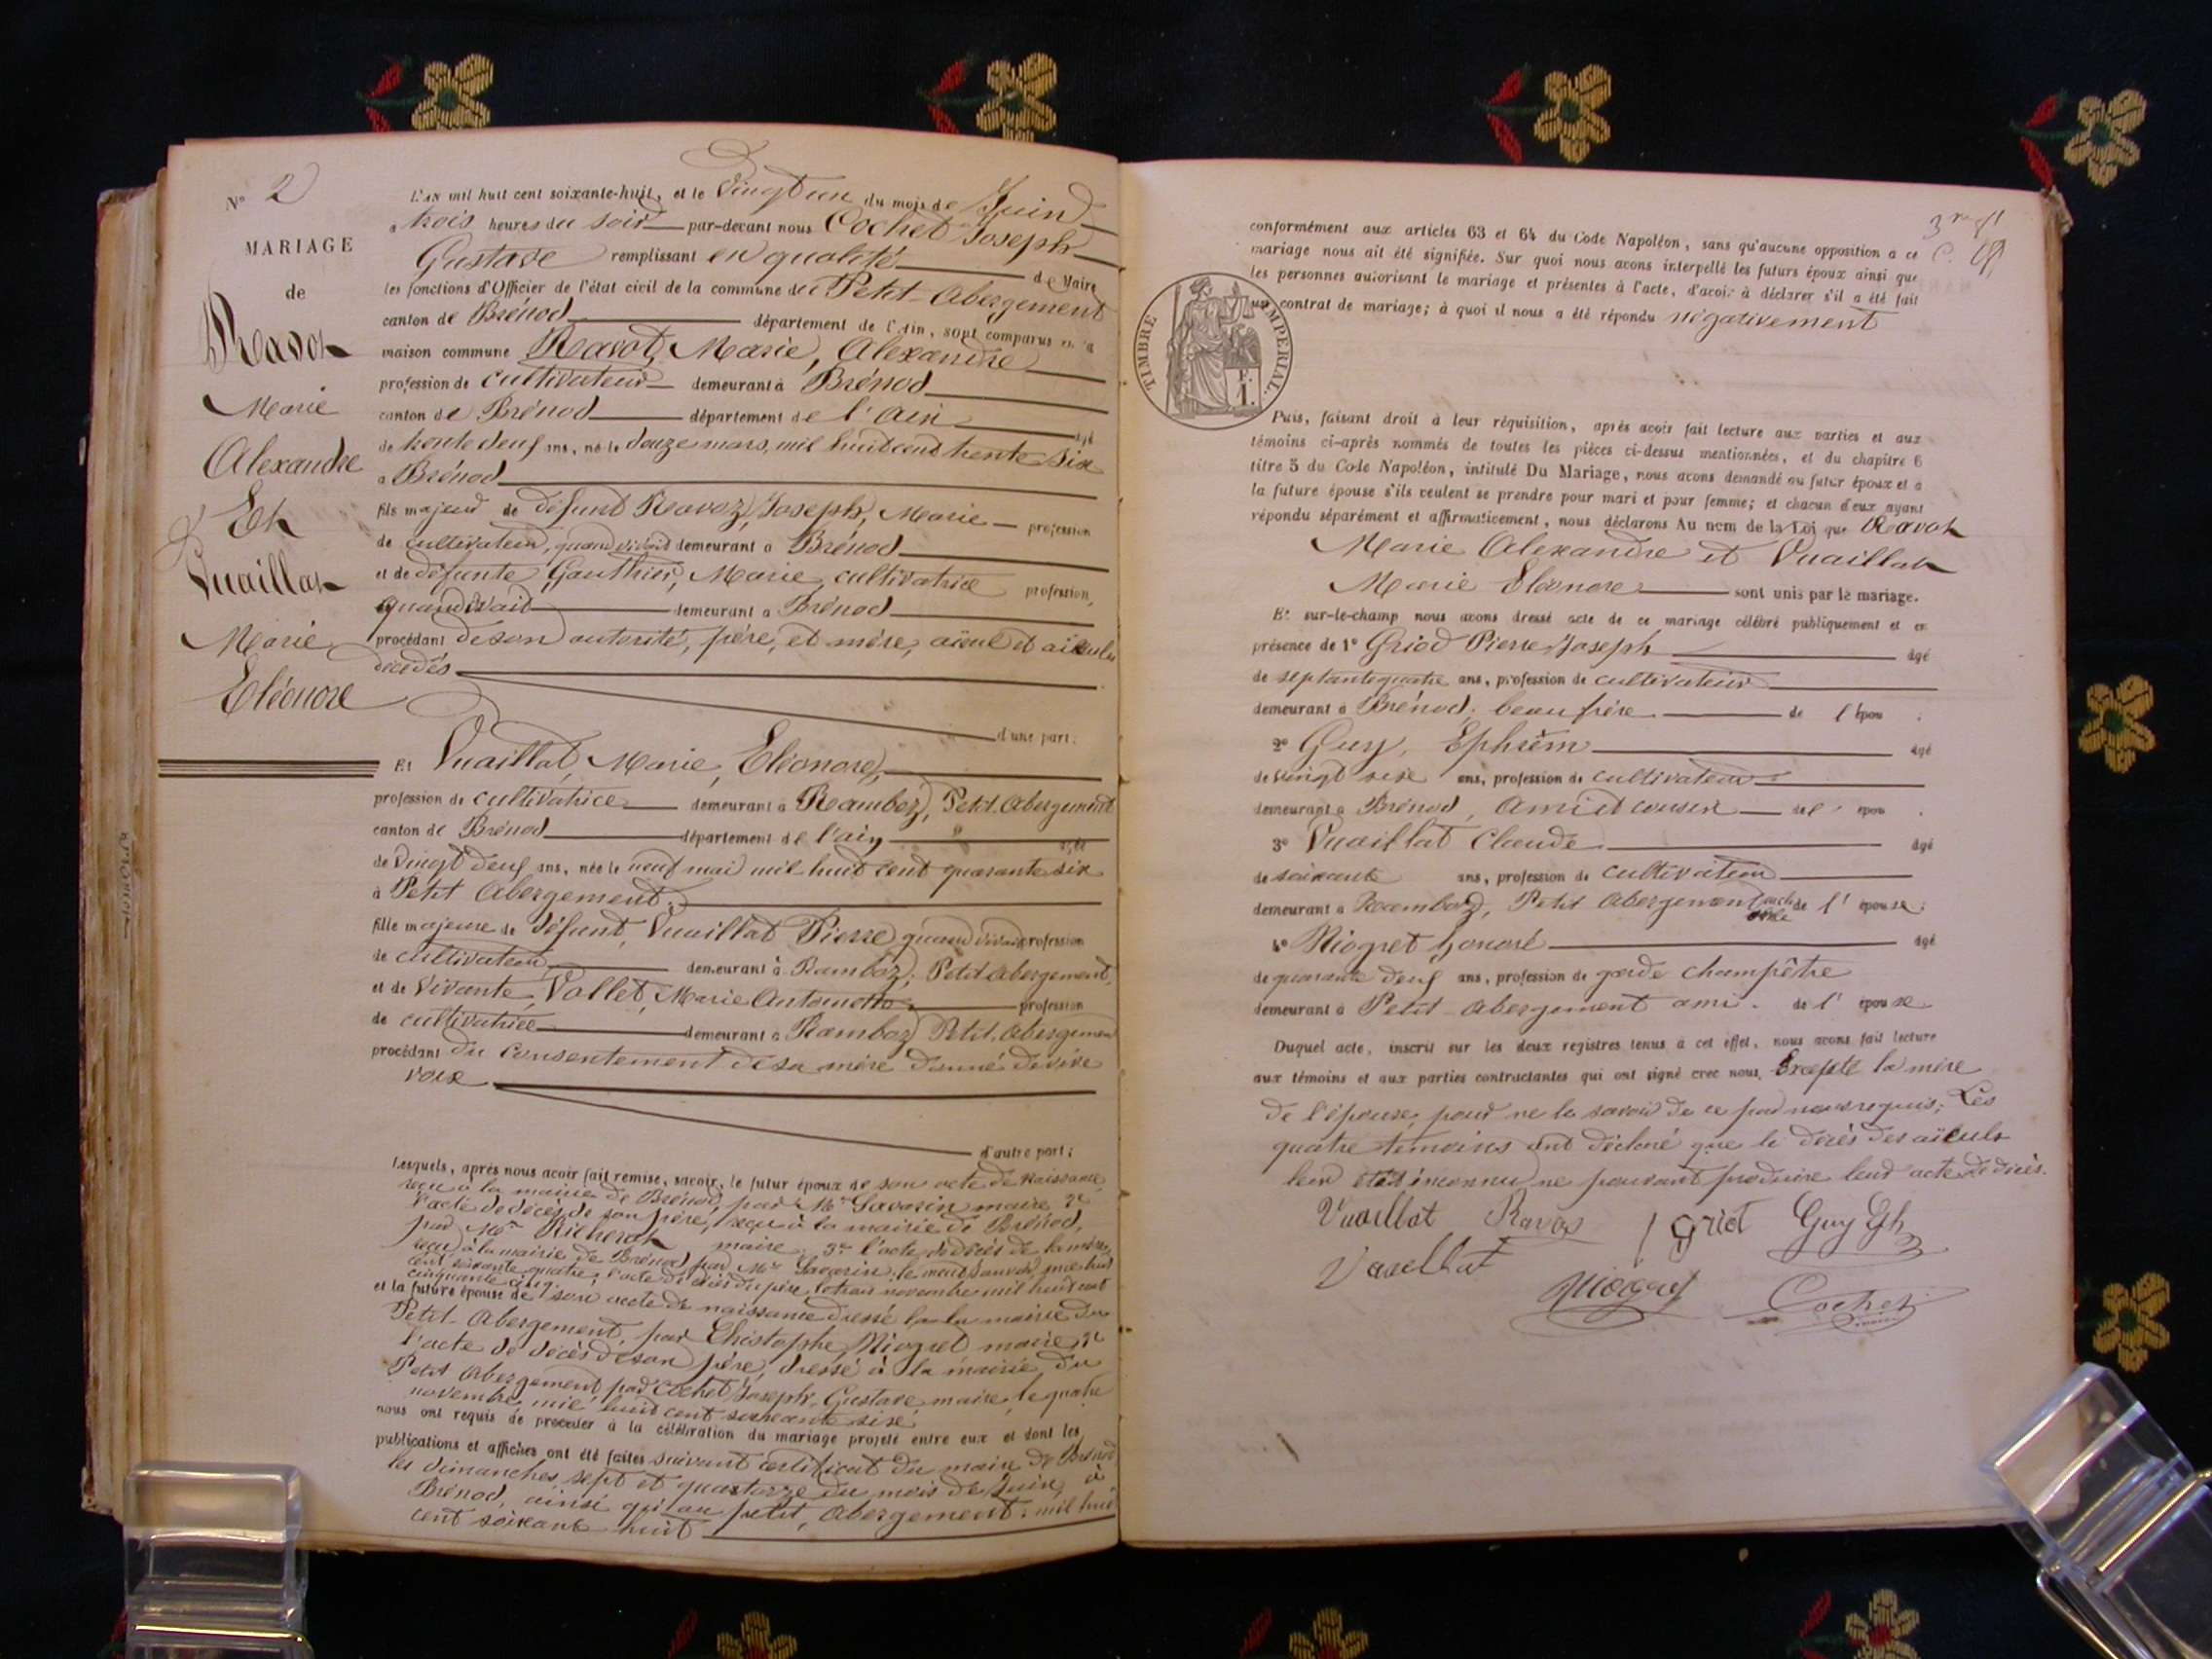 N° 2
MARIAGE
de
Ravot
Marie
Alexandre
Et
Vuaillat
Marie
Eléonore
L'AN mil huit cent soixante-huit, et le vingt un du mois de Juin
a trois heures du soir par-devant nous Cochet Joseph
Gustave remplissant en qualité de Maire
les fonctions d'Officier de l'état civil de la commune du Petit-Abergement
canton de Brénod département de l'Ain, sont comparus en la
maison commune Ravot, Marie, Alexandre
profession de cultivateur demeurant à Brénod
canton de Brénod département de l'ain âgé
de trente deux ans, né le douze mars, mil huit cent trente six
a Brénod
fils majeur de défunt Ravoz, Joseph, Marie profession
de cultivateur, quand vivait demeurant a Brénod
et de défunte Gauthier, Marie, cultivatrice profession,
quand vivait demeurant a Brénod
procédant de son autorité, père, et mère, aïeul et aïeules
décédés
d'une part;
Et Vuaillat, Marie, Eléonore,
profession de cultivatrice demeurant à Ramboz, Petit Abergement
canton de Brénod département de l'ain âgée
de vingt deux ans, née le neuf mai mil huit cent quarante six
à Petit Abergement.
fille majeure de défunt, Vuaillat Pierre quand vivait profession
de cultivateur demeurant à Ramboz, Petit Abergement,
et de vivante, Vallet, Marie Antoinette, profession
de cultivatrice demeurant a Ramboz Petit, Abergement
procédant du consentement de sa mère donné de vive
voix
d'autre part;
Lesquels, après nous avoir fait remise, savoir, le futur époux de son acte de naissance
reçu à la mairie de Brénod, par Mr Savarin maire 2e
l'acte de décès de son père, reçu à la mairie de Brénod,
par Mr Richerot maire. 3e l'acte de décès de la mère
reçu à la mairie de Brénod par Mr Savarin, le neuf Janvier mil huit
cent soixante quatre, l'acte de décès du père, le trois novembre mil huit cent
cinquante cinq.
et la future épouse de son acte de naissance dressé à la mairie du
Petit-Abergement, par Christophe Niogret maire, 2e
l'acte de décès de son père, dressé à la mairie du
Petit Abergement par Cochet Joseph, Gustave maire, le quatre
novembre mil huit cent soixante six,
nous ont requis de procéder à la célébration du mariage projeté entre eux et dont les
publications et affiches ont été faites suivant certificat du maire de Brénod
les dimanches, sept et quatorze du mois de Juin, à
Brénod, ainsi qu'au petit, Abergement, mil huit
cent soixante huit
conformément aux articles 63 et 64 du Code Napoléon, sans qu'aucune opposition a ce
mariage nous ait été signifiée. Sur quoi nous avons interpellé les futurs époux ainsi que
les personnes autorisant le mariage et présentes à l'acte, d'avoir à déclarer s'il a été fait
un contrat de mariage; à quoi il nous a été répondu négativement
TIMBRE IMPERIAL.
F.
1.
Puis, faisant droit à leur réquisition, après avoir fait lecture aux parties et aux
témoins ci-après nommés de toutes les pièces ci-dessus mentionnées, et du chapitre 6
titre 5 du Code Napoléon, intitulé Du Mariage, nous avons demandé au futur époux et a
la future épouse s'ils veulent se prendre pour mari et pour femme; et chacun d'eux ayant
répondu séparément et affirmativement, nous déclarons Au nom de la Loi que Ravot
Marie Alexandre et Vuaillat
Marie Eléonore sont unis par le mariage.
Et sur-le-champ nous avons dressé acte de ce mariage célébré publiquement et en
présence de 1° Griod Pierre Joseph âgé
de septante quatre ans, profession de cultivateur
demeurant à Brénod, beau frère de l'épou
2° Guy, Ephrèm âgé
de vingt six ans, profession de cultivateur
demeurant a Brénod, ami et cousin de l'épou
3° Vuaillat Claude âgé
de soixante ans, profession de cultivateur
demeurant a Ramboz, Petit Abergement oncle de l'épouse;
4° Niogret honoré âgé
de quarante deux ans, profession de garde champêtre
demeurant à Petit Abergement ami de l'épouse
Duquel acte, inscrit sur les deux registres tenus à cet effet, nous avons fait lecture
aux témoins et aux parties contractantes qui ont signé avec nous. Excepté la mère
de l'épouse, pour ne le savoir de ce par nous requis; Les
quatre témoins ont déclaré que le décès des aïeuls
leur était inconnu ne pouvant produire leur acte de décès.
Vuaillat Ravoz Griot Guy Eph
Vuaillat
Niogret Cochet